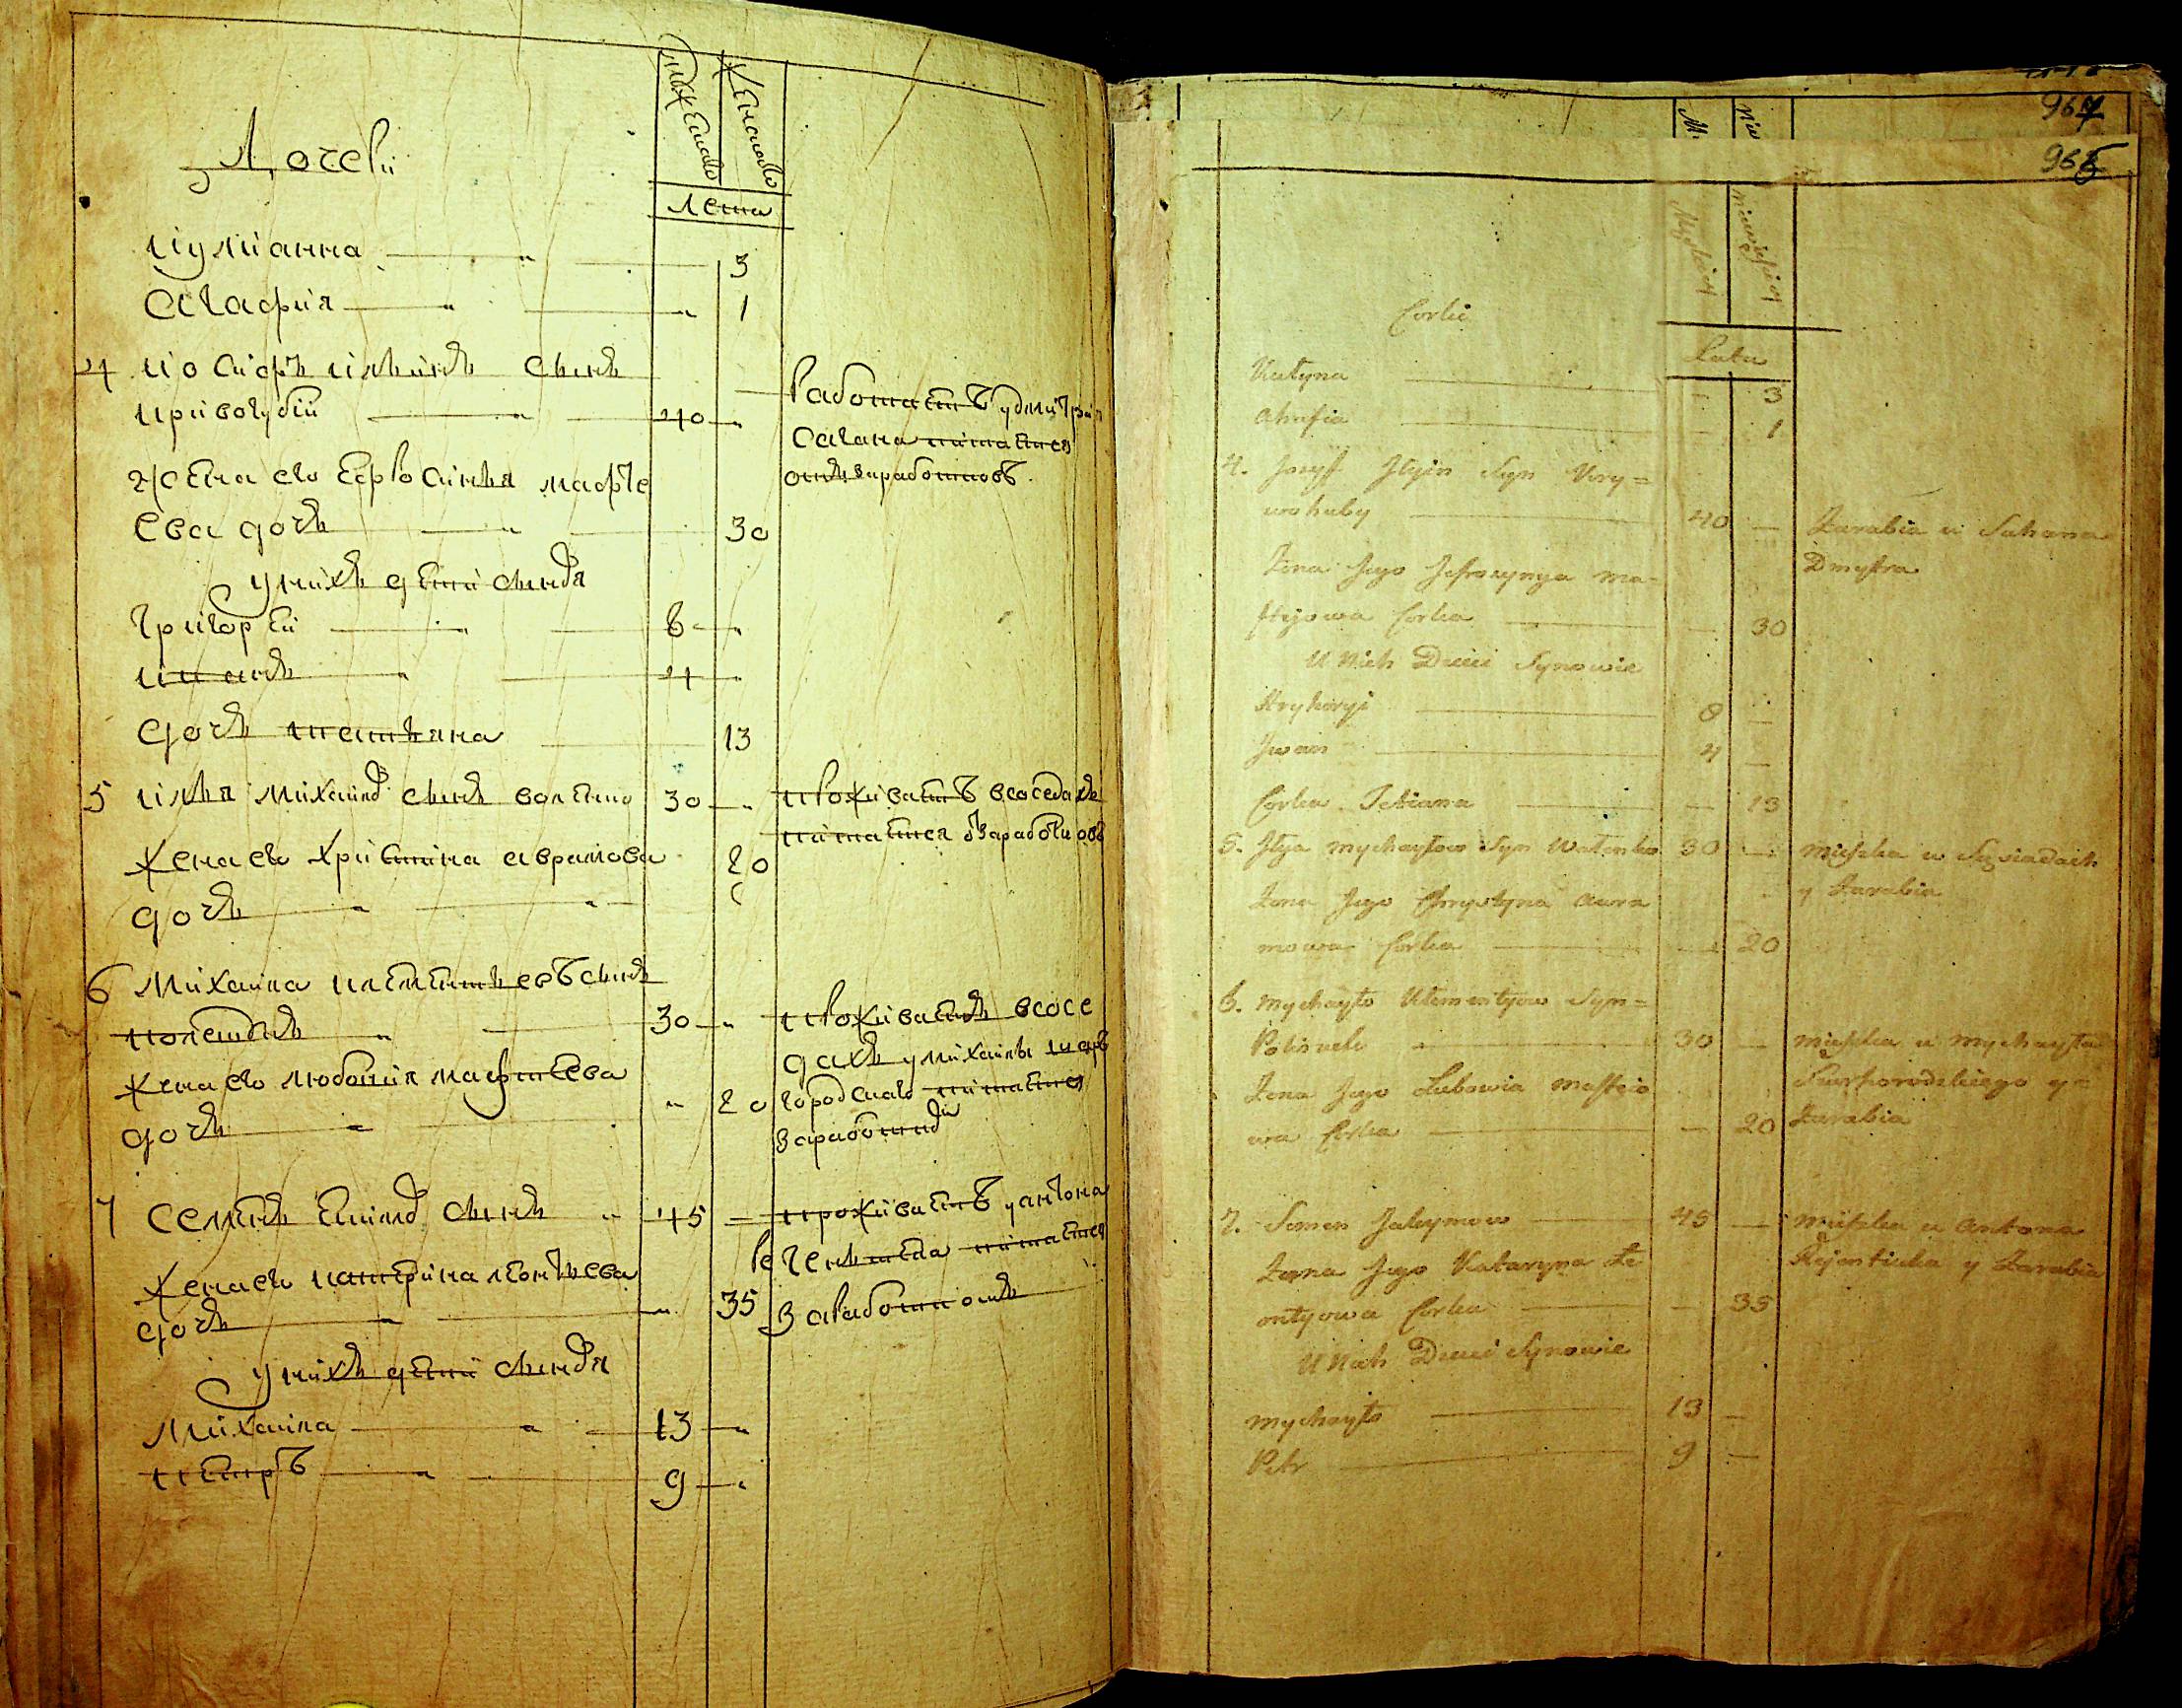 Дочери
мужеска
женска
лета
Иулианна 3
Агафия 1
4 Иосифъ Ильинъ сынъ
Кривогубій 40
Работаетъ у Дмитрия
Сагана питается
отъ заработковъ
жена его Ефросиния Мафте
ева дочь 30
у нихъ дети сыновя
Григорей 8
Иванъ 4
дочь Татияна 13
5 Илья Михайловъ сынъ Ватенко 30
проживаетъ в соседахъ
питается заработковъ
жена его Христина Аврамова 20
дочь
6 Михайла Климентьевъ сынъ
Полещукъ 30
проживаетъ в сосе
дахъ у Михайлы Шар
городскаго питается
заработкомъ
жена его Любовия Мафтеева 20
дочь
7 Семенъ Екимовъ сынъ 45
проживаетъ у Антона
Регентика питается
заработкомъ
жена его Катерина Леонтьева
дочь 35
у нихъ дети сыновя
Михайла 13
Петръ 9
967
M. Nie
965
Męskiey niewieściey
Corki
Lata
3
Ahafia 1
4. Jozyf Jlyin Syn Kry=
wohuby 40 — Zarabia u Sahana
Dmytra
Zona Jego Jefrocynya Ma-
ftejowa Corka — 30
U Nich Dzieci Synowie
Hryhoryi 8 —
Jwan 4 —
Corka Tetiana — 13
5. Jlya Mychayłow Syn Watenko 30 — Mięszka w Sąsiadach
y Zarabia
Zona Jego Chrystyna Awra
mowa Corka — 20
6. Mychayło Klementyow Syn=
Poliszuk 30 — Mięszka u Mychayła
Szarhorodzkiego y=
Zarabia
Zona Jego Lubowia Mafteio
wa Corka — 20
7. Semen Jakymow 45 — Mięszka u Antona
Rejentika y Zarabia
Zona Jego Kataryna Le
ontyowa Corka — 35
U Nich Dzieci Synowie
Mychayło 13 —
Petr 9 —